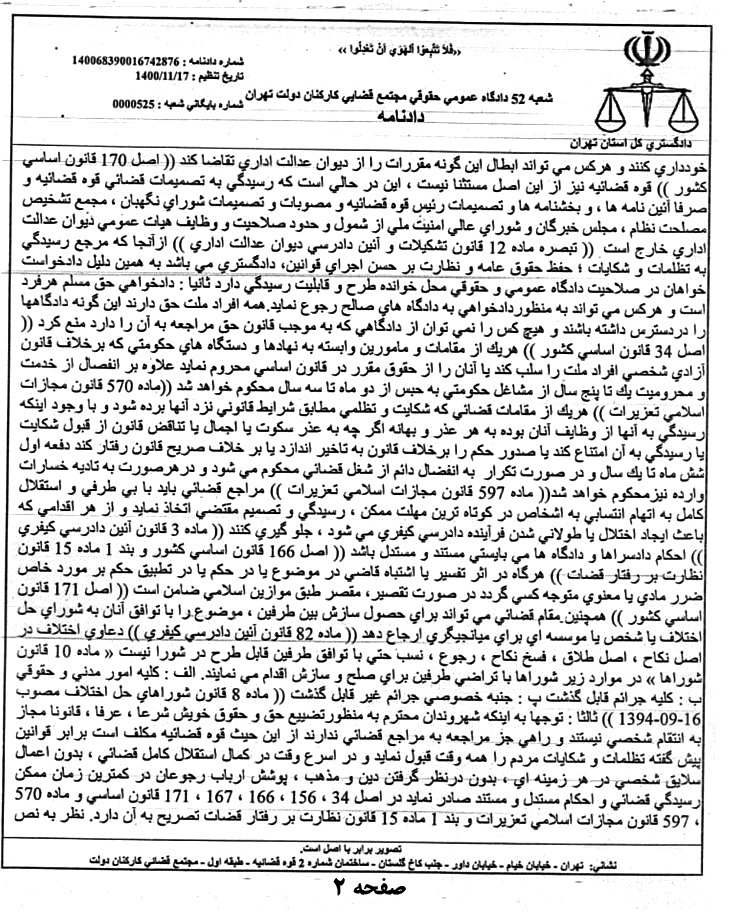 «فَلاَ تَتَّبِعُوا الْهَوَي أَنْ تَعْدِلُوا»
شماره دادنامه : 140068390016742876
تاریخ تنظیم : 1400/11/17
شماره بایگانی شعبه : 0000525
شعبه 52 دادگاه عمومي حقوقي مجتمع قضایي كاركنان دولت تهران
دادنامه
دادگستري كل استان تهران
خودداري كنند و هركس مي تواند ابطال این گونه مقررات را از دیوان عدالت اداري تقاضا كند (( اصل 170 قانون اساسي
كشور )) قوه قضائیه نیز از این اصل مستثنا نیست ، این در حالي است كه رسیدگي به تصمیمات قضائي قوه قضائیه و
صرفا آئین نامه ها ، و بخشنامه ها و تصمیمات رئیس قوه قضائیه و مصوبات و تصمیمات شوراي نگهبان ، مجمع تشخیص
مصلحت نظام ، مجلس خبرگان و شوراي عالي امنیت ملي از شمول و حدود صلاحیت و وظایف هیات عمومي دیوان عدالت
اداري خارج است (( تبصره ماده 12 قانون تشكیلات و آئین دادرسي دیوان عدالت اداري )) ازآنجا كه مرجع رسیدگي
به تظلمات و شكایات ؛ حفظ حقوق عامه و نظارت بر حسن اجراي قوانین، دادگستري مي باشد به همین دلیل دادخواست
خواهان در صلاحیت دادگاه عمومي و حقوقي محل خوانده طرح و قابلیت رسیدگي دارد ثانیا : دادخواهي حق مسلم هرفرد
است و هركس مي تواند به منظوردادخواهي به دادگاه هاي صالح رجوع نماید.همه افراد ملت حق دارند این گونه دادگاهها
را دردسترس داشته باشند و هیچ كس را نمي توان از دادگاهي كه به موجب قانون حق مراجعه به آن را دارد منع كرد ((
اصل 34 قانون اساسي كشور )) هریك از مقامات و مامورین وابسته به نهادها و دستگاه هاي حكومتي كه برخلاف قانون
آزادي شخصي افراد ملت را سلب كند یا آنان را از حقوق مقرر در قانون اساسي محروم نماید علاوه بر انفصال از خدمت
و محرومیت یك تا پنج سال از مشاغل حكومتي به حبس از دو ماه تا سه سال محكوم خواهد شد ((ماده 570 قانون مجازات
اسلامي تعزیرات )) هریك از مقامات قضائي كه شكایت و تظلمي مطابق شرایط قانوني نزد آنها برده شود و با وجود اینكه
رسیدگي به آنها از وظایف آنان بوده به هر عذر و بهانه اگر چه به عذر سكوت یا اجمال یا تناقض قانون از قبول شكایت
یا رسیدگي به آن امتناع كند یا صدور حكم را برخلاف قانون به تاخیر اندازد یا بر خلاف صریح قانون رفتار كند دفعه اول
شش ماه تا یك سال و در صورت تكرار به انفضال دائم از شغل قضائي محكوم مي شود و درهرصورت به تادیه خسارات
وارده نیزمحكوم خواهد شد(( ماده 597 قانون مجازات اسلامي تعزیرات )) مراجع قضائي باید با بي طرفي و استقلال
كامل به اتهام انتسابي به اشخاص در كوتاه ترین مهلت ممكن ، رسیدگي و تصمیم مقتضي اتخاذ نماید و از هر اقدامي كه
باعث ایجاد اختلال یا طولاني شدن فرآینده دادرسي كیفري مي شود ، جلو گیري كنند (( ماده 3 قانون آئین دادرسي كیفري
)) احكام دادسراها و دادگاه ها مي بایستي مستند و مستدل باشد (( اصل 166 قانون اساسي كشور و بند 1 ماده 15 قانون
نظارت بر رفتار قضات )) هرگاه در اثر تفسیر یا اشتباه قاضي در موضوع یا در حكم یا در تطبیق حكم بر مورد خاص
ضرر مادي یا معنوي متوجه كسي گردد در صورت تقصیر، مقصر طبق موازین اسلامي ضامن است (( اصل 171 قانون
اساسي كشور )) همچنین مقام قضائي مي تواند براي حصول سازش بین طرفین ، موضوع را با توافق آنان به شوراي حل
اختلاف یا شخص یا موسسه اي براي میانجیگري ارجاع دهد (( ماده 82 قانون آئین دادرسي كیفري )) دعاوي اختلاف در
اصل نكاح ، اصل طلاق ، فسخ نكاح ، رجوع ، نسب حتي با توافق طرفین قابل طرح در شورا نیست « ماده 10 قانون
شوراها » در موارد زیر شوراها با تراضي طرفین براي صلح و سازش اقدام مي نمایند. الف : كلیه امور مدني و حقوقي
ب : كلیه جرائم قابل گذشت پ : جنبه خصوصي جرائم غیر قابل گذشت (( ماده 8 قانون شوراهاي حل اختلاف مصوب
16-09-1394 )) ثالثا : توجها به اینكه شهروندان محترم به منظورتضییع حق و حقوق خویش شرعا ، عرفا ، قانونا مجاز
به انتقام شخصي نیستند و راهي جز مراجعه به مراجع قضائي ندارند از این حیث قوه قضائیه مكلف است برابر قوانین
پیش گفته تظلمات و شكایات مردم را همه وقت قبول نماید و در اسرع وقت در كمال استقلال كامل قضائي ، بدون اعمال
سلایق شخصي در هر زمینه اي ، بدون درنظر گرفتن دین و مذهب ، پوشش ارباب رجوعان در كمترین زمان ممكن
رسیدگي قضائي و احكام مستدل و مستند صادر نماید در اصل 34 ، 156 ، 166 ، 167 ، 171 قانون اساسي و ماده 570
، 597 قانون مجازات اسلامي تعزیرات و بند 1 ماده 15 قانون نظارت بر رفتار قضات تصریح به آن دارد. نظر به نص
تصویر برابر با اصل است.
نشاني: تهران - خیابان خیام - خیابان داور - جنب كاخ گلستان - ساختمان شماره 2 قوه قضائیه - طبقه اول - مجتمع قضائي كاركنان دولت
صفحه ۲